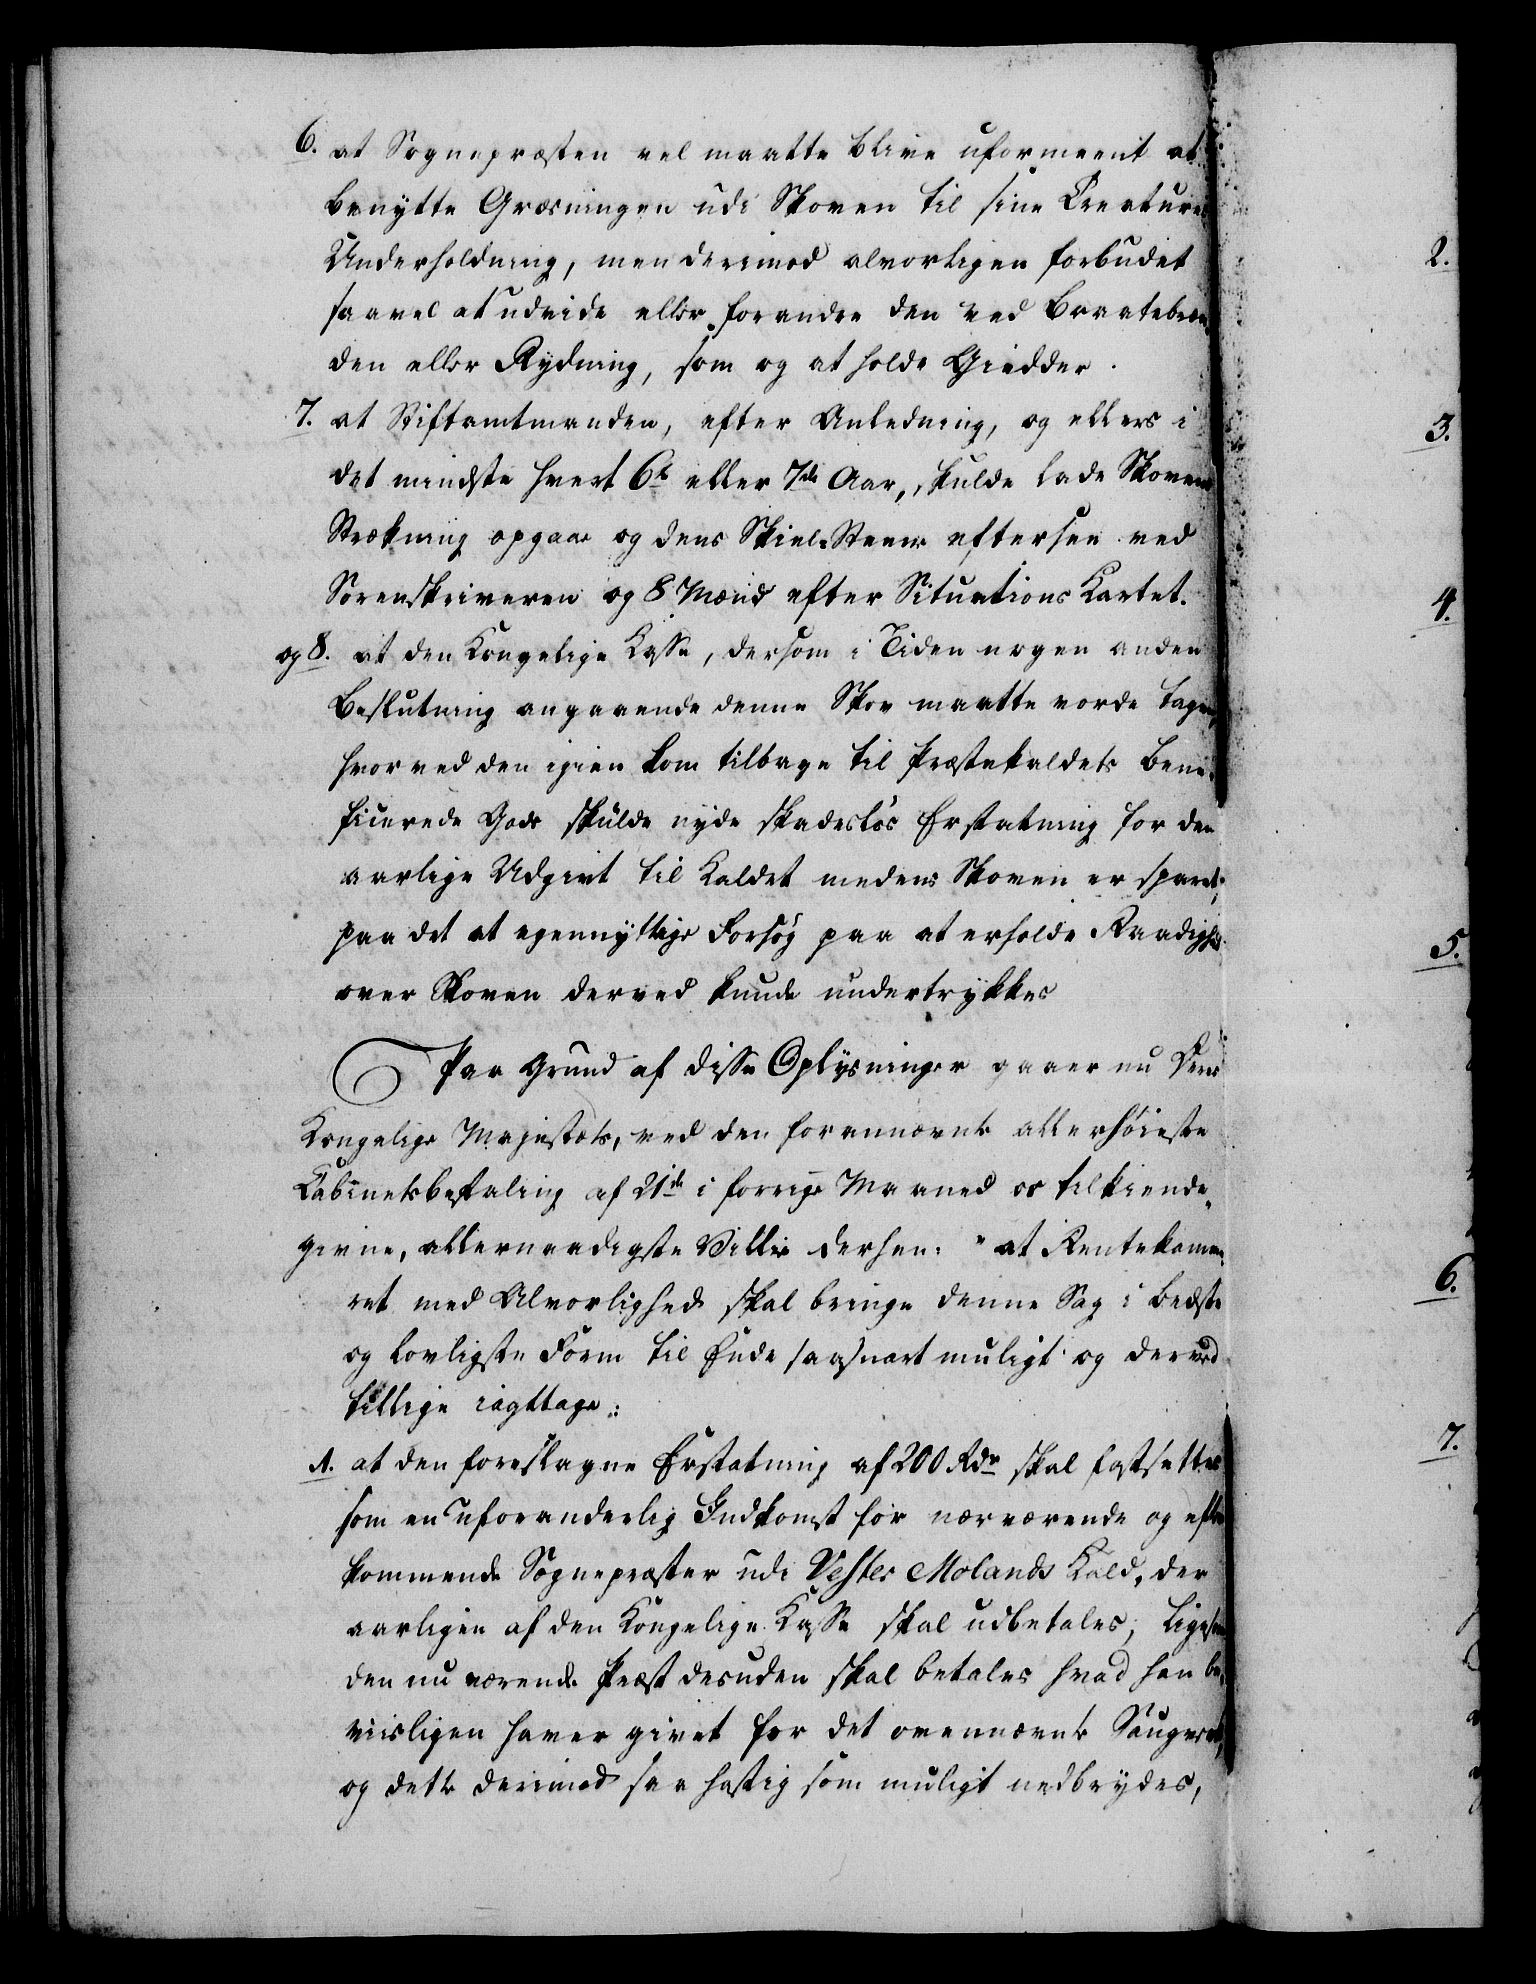 6. at Sognepræsten vel maatte blive uformeent at
benytte Græsningen udi Skoven til sine Creaturers
Underholdning, men derimod alvorligen forbudet
saavel at udvide eller forandre den ved Braatebræn„
den eller Rydning, som og at holde Giedder.
7. at Stiftamtmanden, efter Anledning, og ellers i
det mindste hvert 6te eller 7de Aar, skulde lade Skovens
Strækning opgaae og dens Skiel-Steene eftersee ved
Sorenskriveren og 8 Mænd efter Situations Cartet.
og 8. at den Kongelige Casse, dersom i Tiden nogen anden
Beslutning angaaende denne Skov maatte vorde tagen,
hvorved den igien kom tilbage til Præstekaldets bene„
ficerede Gods skulde nyde skadesløs Erstatning for den
aarlige Udgivt til Kaldet medens Skoven er sparet,
paa det at egennyttige Forsøg paa at erholde Raadighed
over Skoven derved kunde undertrykkes
Paa Grund af disse Oplysninger gaaer nu Deres
Kongelige Majestæts, ved den forannævnte allerhøieste
Cabinetsbefaling af 21de i forrige Maaned os tilkiende„
givne, allernaadigste Villie derhen: "at Rentekamme„
ret med Alvorlighed skal bringe denne Sag i bedste
og lovligste Form til Ende saasnart muligt og derved
tillige iagttage:
1. at den foreslagne Erstatning af 200 Rdr skal fastsættes
som en uforanderlig Indkomst for nærværende og efter
kommende Sognepræster udi Vester Molands Kald, der
aarligen af den Kongelige Casse skal udbetales; ligesom
den nu værende Præst desuden skal betales hvad han be„
viisligen haver givet for det ovennævnte Saugverk,
og dette derimod saa hastig som muligt nedbrydes,
2.
3.
4.
5.
6.
7.